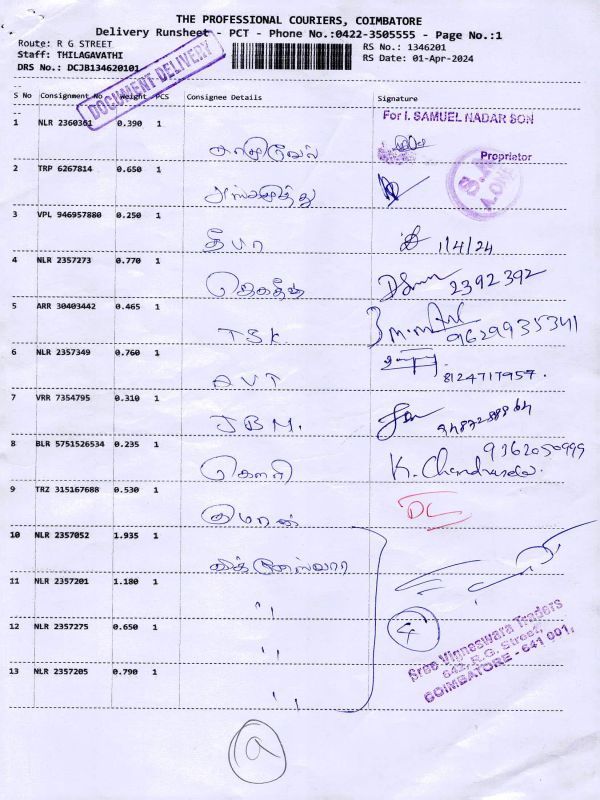 THE PROFESSIONAL COURIERS, COIMBATORE
Delivery Runsheet - PCT - Phone No.:0422-3505555 - Page No.:1
Route: R G STREET
RS No.: 1346201
Staff: THILAGAVATHI
RS Date: 01-Apr-2024
DRS No.: DCJB134620101
DOCUMENT DELIVERY
S No Consignment No Weight PCS Consignee Details Signature
1 NLR 2360361 0.390 1 சாமுவேல் For I. SAMUEL NADAR SON
Proprietor
2 TRP 6267814 0.650 1
3 VPL 946957880 0.250 1 தீபா 1/4/24
4 NLR 2357273 0.770 1 2392392
5 ARR 30403442 0.465 1 TSK. 9629935341
6 NLR 2357349 0.760 1 AVT 8124717957.
7 VRR 7354795 0.310 1 JBM.
8 BLR 5751526534 0.235 1 கௌரி 9362050999
K. Chandrasekar.
9 TRZ 315167688 0.530 1 குமரன் DC
10 NLR 2357052 1.935 1 விக்னேஸ்வரா
11 NLR 2357201 1.180 1 "
12 NLR 2357275 0.650 1 "
4
13 NLR 2357205 0.790 1 "
Sree Vigneswara Traders
642, R.G. Street,
COIMBATORE - 641 001.
a